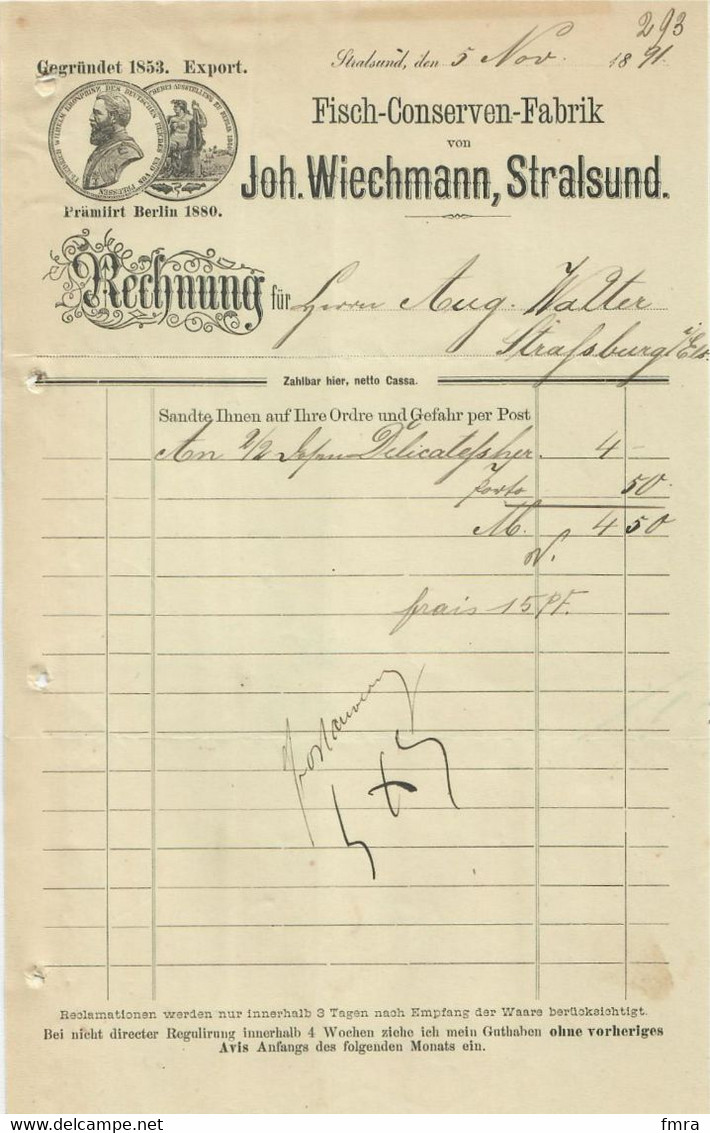 293
Gegründet 1853. Export.
Stralsund, den 5 Nov. 1891.
Fisch-Conserven-Fabrik
von
Joh. Wiechmann, Stralsund.
Prämiirt Berlin 1880.
Rechnung für Herrn Aug. Walter
Straßburg i/Els.
Zahlbar hier, netto Cassa.
Sandte Ihnen auf Ihre Ordre und Gefahr per Post
An 2/2 Dosen Delicateßher. 4 -
Porto 50.
M. 4 50
frais 15 Pf.
Reclamationen werden nur innerhalb 3 Tagen nach Empfang der Waare berücksichtigt.
Bei nicht directer Regulirung innerhalb 4 Wochen ziehe ich mein Guthaben ohne vorheriges
Avis Anfangs des folgenden Monats ein.
www.delcampe.net
fmra